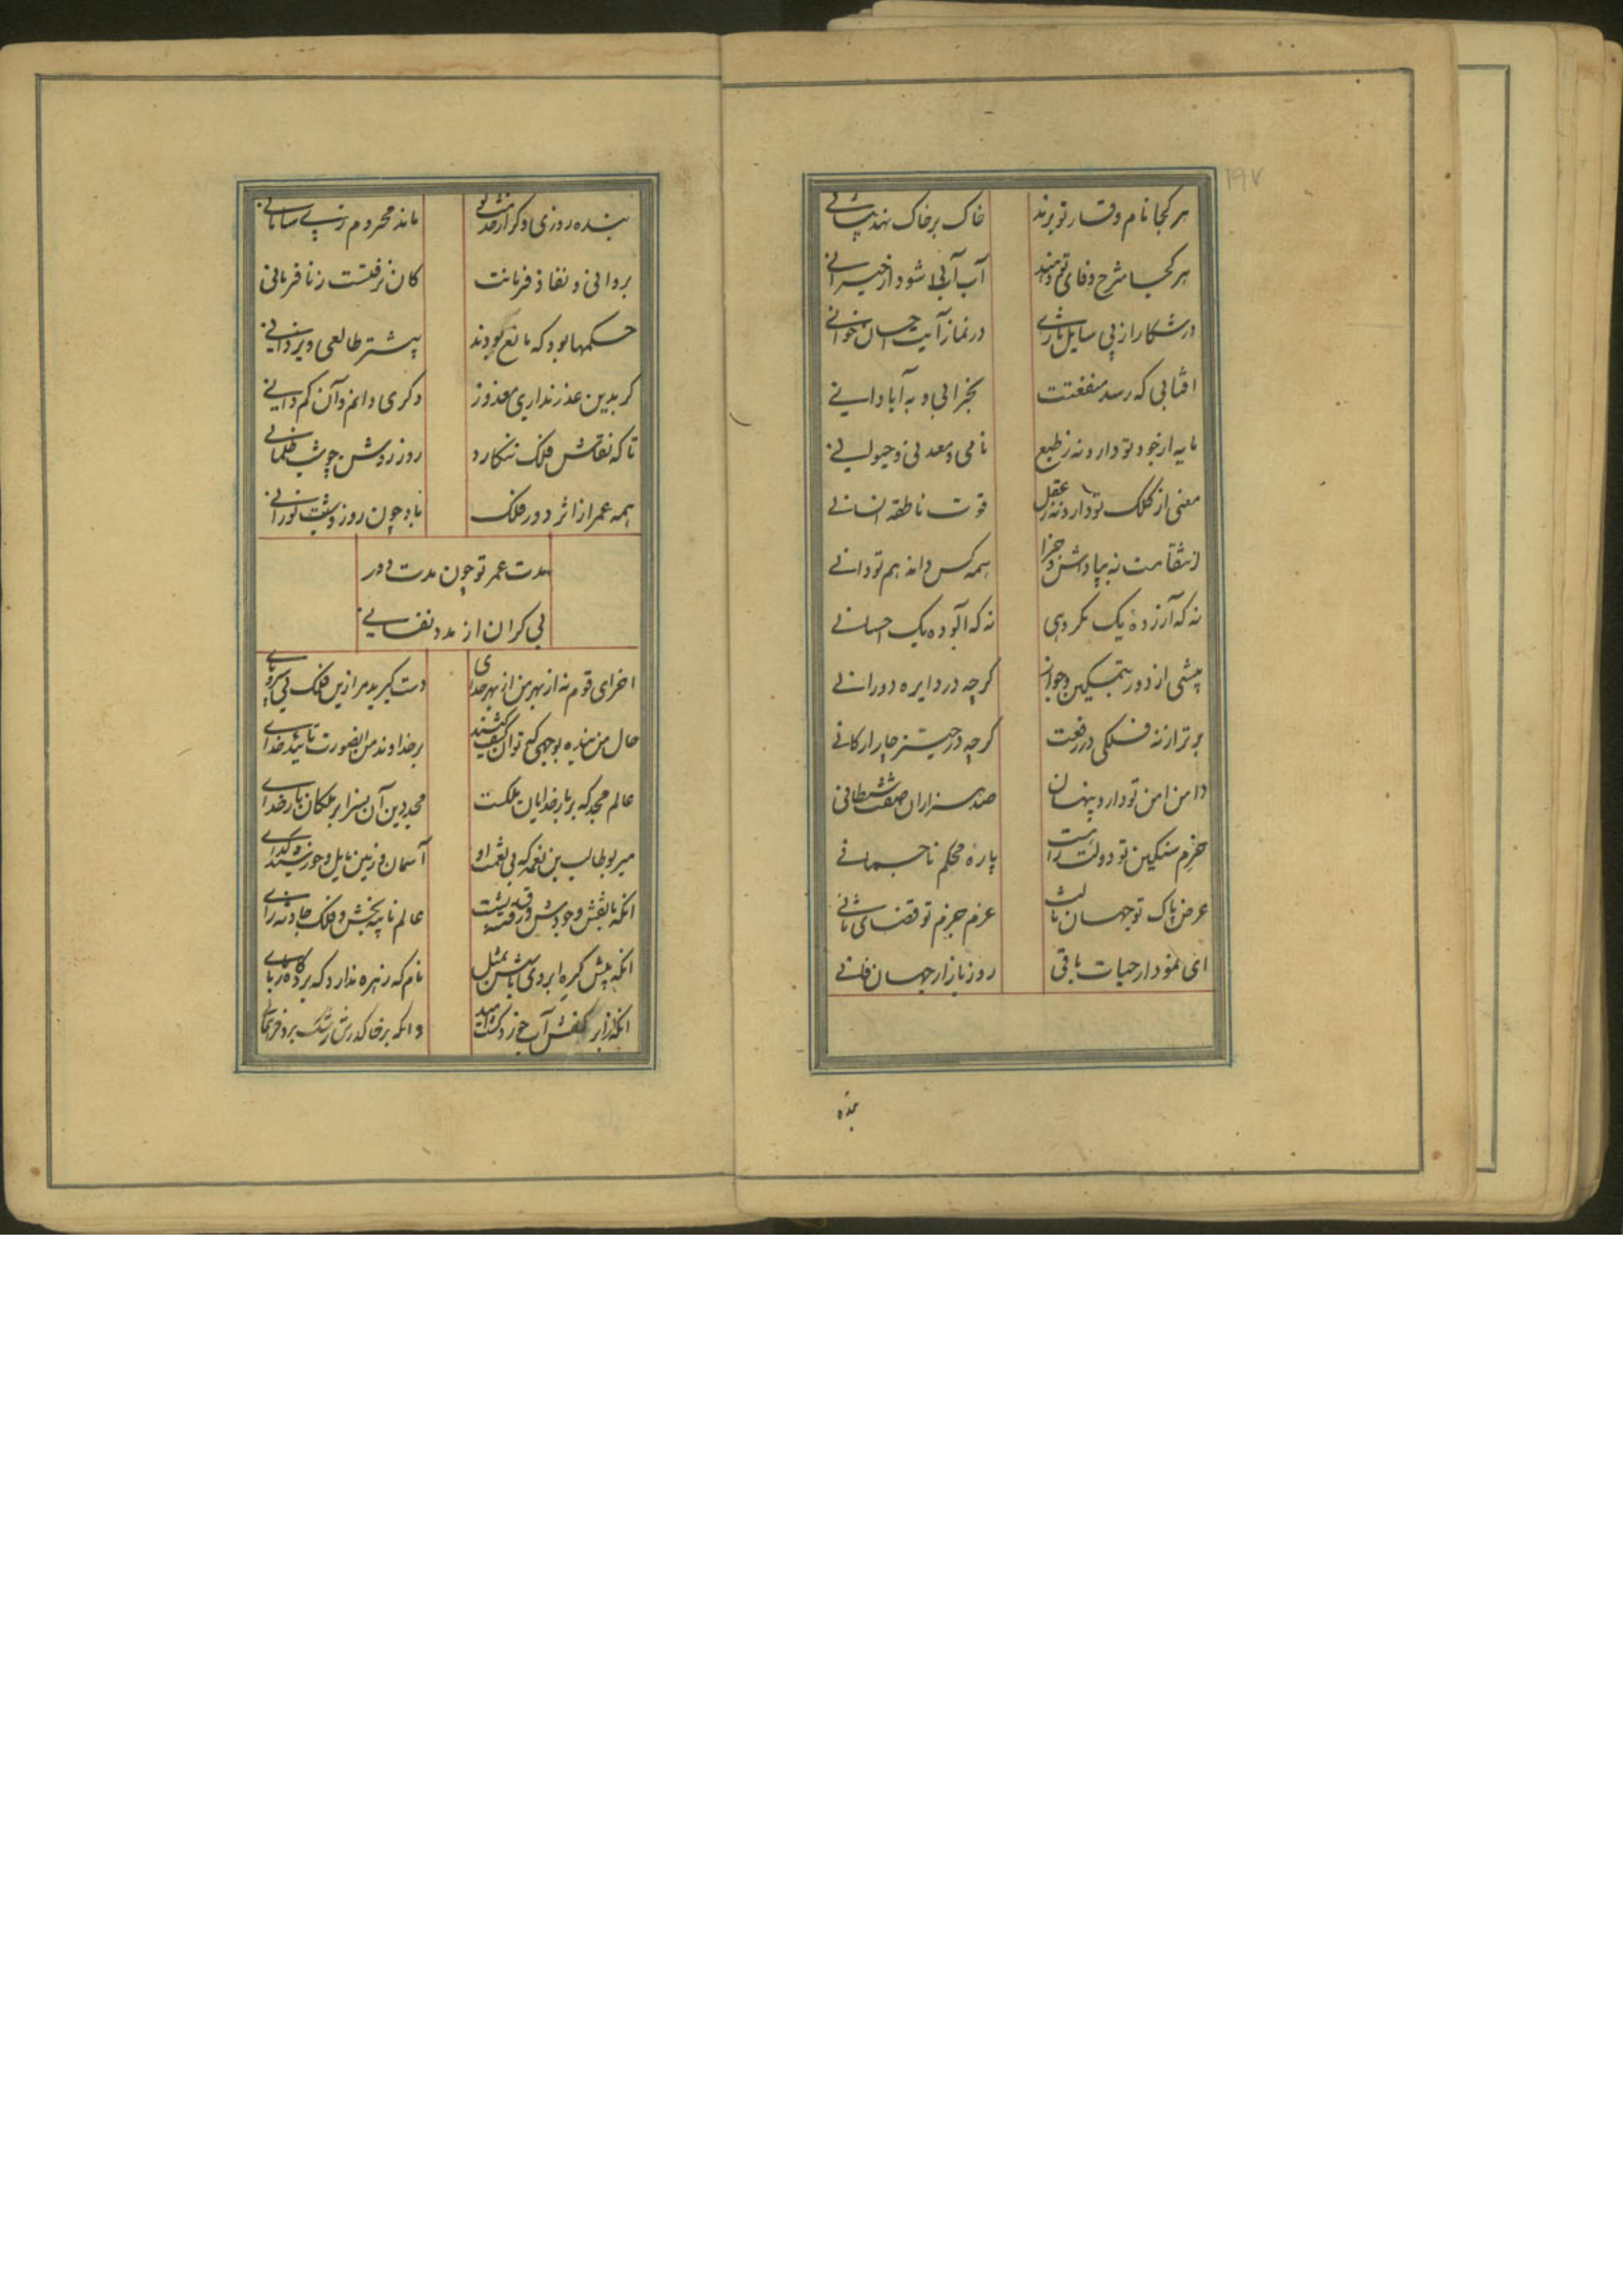 ۱۹۷
هر کجا نام وقار تو برند خاک بر خاک نهد پیشانی
هر کجا شرح وفای تو دهند آب آبی شود از حیرانی
در شکار از پی سایل تازی در نماز آیت احسان خوانی
افتابی که رسد منفعتت بخرابی و به آبادانی
مایه از جود تو دارد نه ز طبع نامی و معدنی و حیوانی
معنی از کلک تو دارد نه ز عقل قوت ناطقه انسانی
ز انتقامت نه بپاداش و جزا همه کس داند هم تو دانی
نه که آزرده یک مکروهی نه که آلوده یک احسانی
پیشی از دور بتمکین و جواز کرچه در دایره دورانی
برتر از نه فلکی در رفعت کرچه در حیز چار ارکانی
دامن امن تو دارد پنهان صد هزاران صفت شیطانی
حزم سنکین تو دولت راست باره محکم ناجسمانی
عرض پاک تو جهان ثالث عزم جزم تو قضای ثانی
ای نمودار حیات باقی روز بازار جهان فانی
بنده
بنده روزی دو کر از خدمت تو ماند محروم ز بی سامانی
بروانی و نفاذ فرمانت کان نرفتست ز نا فرمانی
حکمها بود که مانع بودند بیشتر طالعی و یزدانی
کر بدین عذر نداری معذور دکری دانم و آن کم دانی
تا که نقاش فلک ننکارد روز روشن چو شب ظلمانی
همه عمر از اثر دور فلک باد چون روز و شبت نورانی
مدت عمر تو چون مدت دور
بی کران از مدد نفسانی
اخر ای قوم نه از بهر من از بهر خدای دست کیرید مرا زین فلک بی سر و پای
حال من بنده بوجهی که توان کشف کنید بر خداوند من آن صورت تائید خدای
عالم مجد که بر بار خدایان ملکست مجد دین آن بسزا بر ملکان بار خدای
میر بوطالب بن نعمه که بی نعمت او آسمان و زمین مایل و خورشید کدای
انکه با نقش وجودش ورق عالم نابه بخش و فلک حادثه زای
انکه پیش کره ابروی باسش بمثل نام که زهره ندارد که برد کاه ربای
انکه از ابر کفش آب خورد کشت امید وانکه بر خاک درش رشک برد فر همای